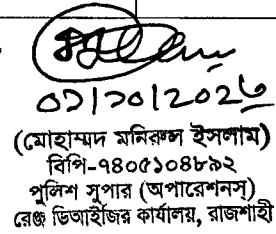 ০১/১০/২০২৬
(মোহাম্মদ মনিরুল ইসলাম)
বিপি-৭৪০৫১০৪৮৯২
পুলিশ সুপার (অপারেশনস্)
রেঞ্জ ডিআইজির কার্যালয়, রাজশাহী